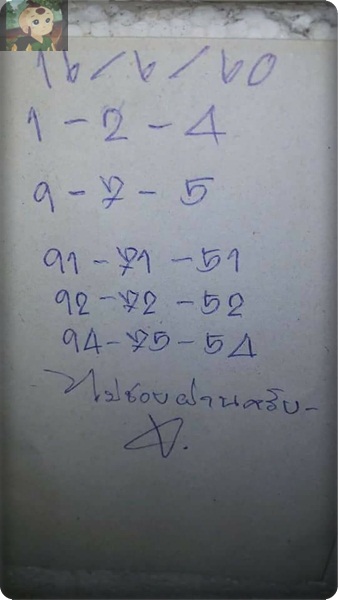 16/6/60
1-2-4
9-7-5
91-71-51
92-72-52
94-75-54
ไม่ชอบผ่านครับ-